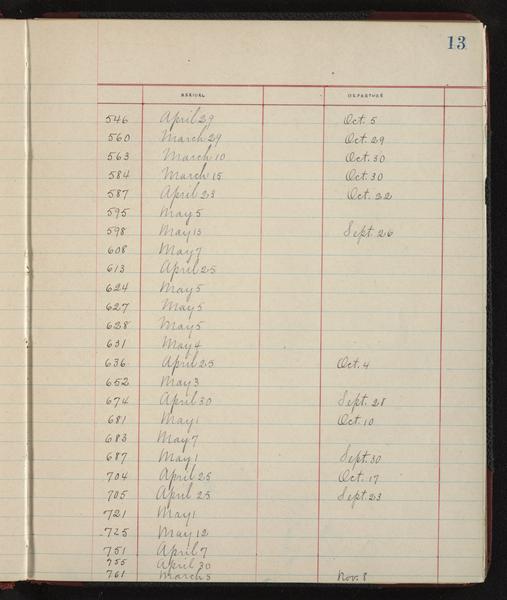 13
ARRIVAL DEPARTURE
546 April 29 Oct. 5
560 March 29 Oct. 29
563 March 10 Oct. 30
584 March 15 Oct. 30
587 April 23 Oct. 22
595 May 5
598 May 13 Sept. 26
608 May 7
613 April 25
624 May 5
627 May 5
628 May 5
631 May 4
636 April 25 Oct. 4
652 May 3
674 April 30 Sept. 28
681 May 1 Oct. 10
683 May 7
687 May 1 Sept. 30
704 April 25 Oct. 17
705 April 25 Sept 23
721 May 1
725 May 12
751 April 7
755 April 30
761 March 5 Nov. 8